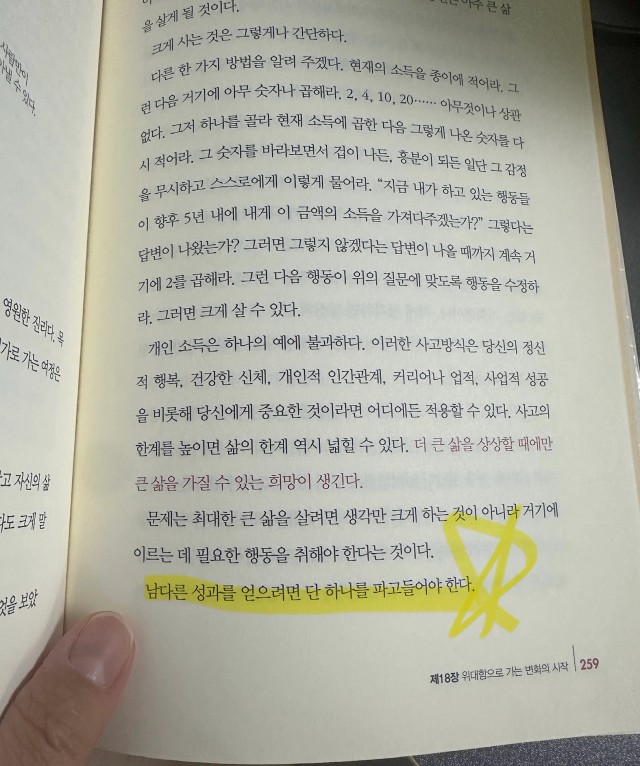 사람만이
영원한 진리다. 목
가로 가는 여정은
고 자신의 삶
다도 크게 말
엇을 보았
아주 큰 삶
을 살게 될 것이다.
크게 사는 것은 그렇게나 간단하다.
다른 한 가지 방법을 알려 주겠다. 현재의 소득을 종이에 적어라. 그
런 다음 거기에 아무 숫자나 곱해라. 2, 4, 10, 20…… 아무것이나 상관
없다. 그저 하나를 골라 현재 소득에 곱한 다음 그렇게 나온 숫자를 다
시 적어라. 그 숫자를 바라보면서 겁이 나든, 흥분이 되든 일단 그 감정
을 무시하고 스스로에게 이렇게 물어라. “지금 내가 하고 있는 행동들
이 향후 5년 내에 내게 이 금액의 소득을 가져다주겠는가?” 그렇다는
답변이 나왔는가? 그러면 그렇지 않겠다는 답변이 나올 때까지 계속 거
기에 2를 곱해라. 그런 다음 행동이 위의 질문에 맞도록 행동을 수정하
라. 그러면 크게 살 수 있다.
개인 소득은 하나의 예에 불과하다. 이러한 사고방식은 당신의 정신
적 행복, 건강한 신체, 개인적 인간관계, 커리어나 업적, 사업적 성공
을 비롯해 당신에게 중요한 것이라면 어디에든 적용할 수 있다. 사고의
한계를 높이면 삶의 한계 역시 넓힐 수 있다. 더 큰 삶을 상상할 때에만
큰 삶을 가질 수 있는 희망이 생긴다.
문제는 최대한 큰 삶을 살려면 생각만 크게 하는 것이 아니라 거기에
이르는 데 필요한 행동을 취해야 한다는 것이다.
남다른 성과를 얻으려면 단 하나를 파고들어야 한다.
제18장 위대함으로 가는 변화의 시작 259